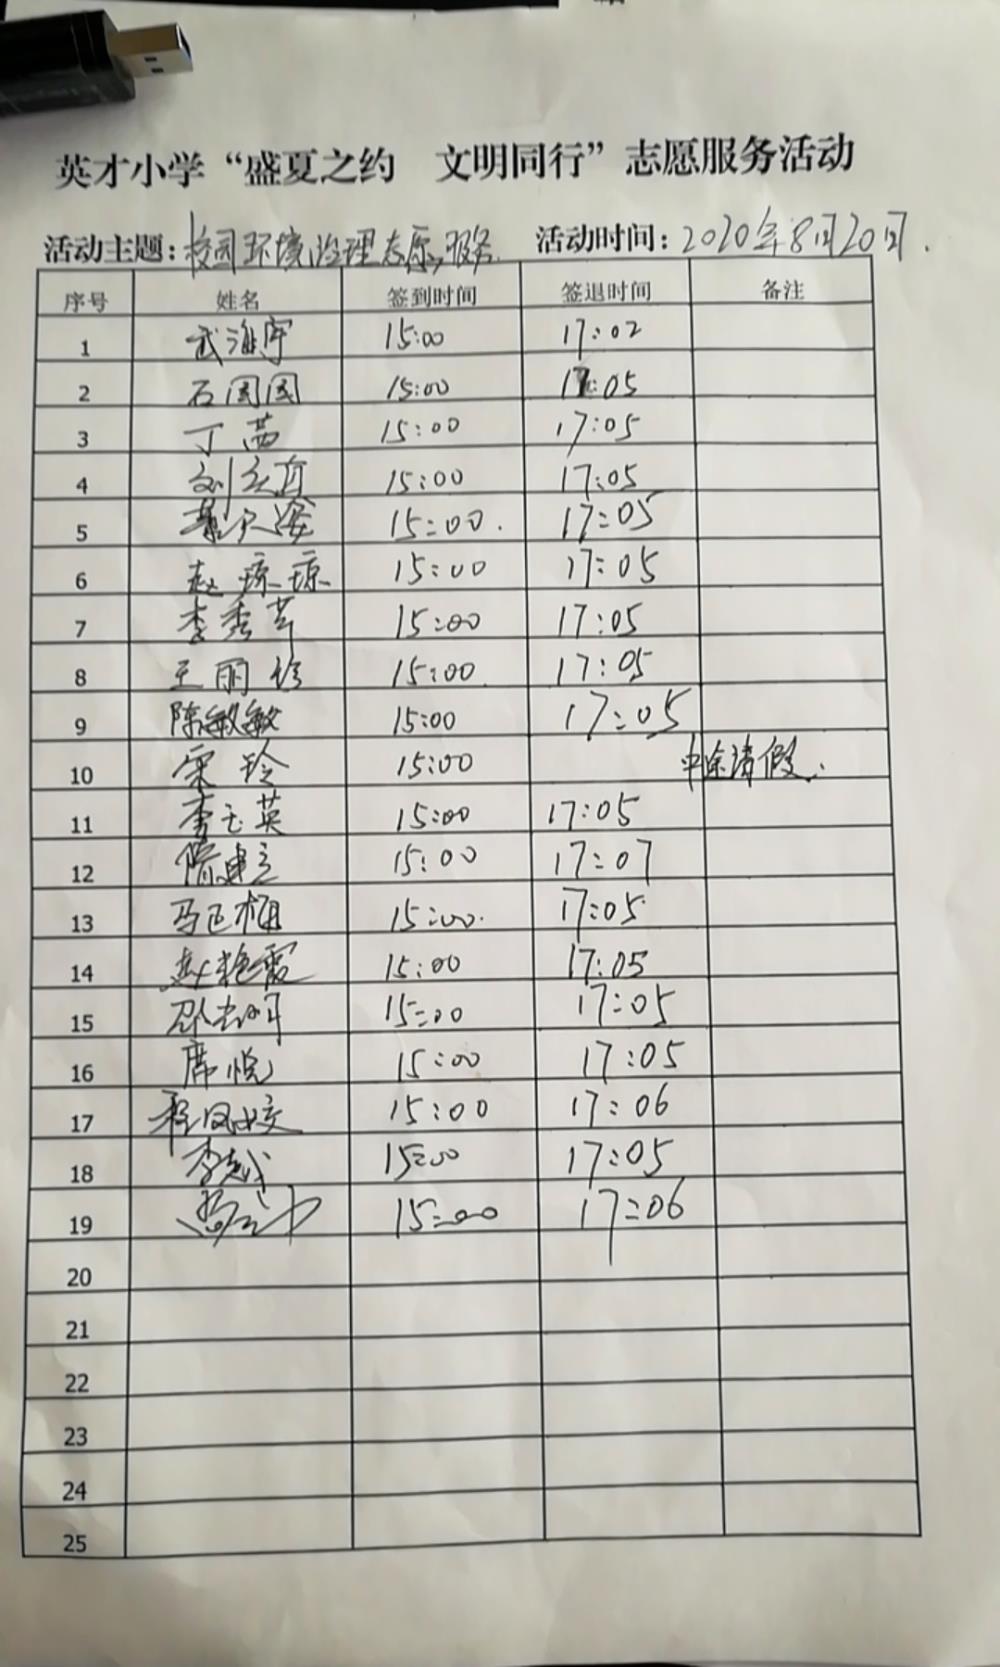 英才小学“盛夏之约 文明同行”志愿服务活动
活动主题:校园环境治理志愿服务 活动时间:2020年8月20日.
序号 姓名 签到时间 签退时间 备注
1 武海宇 15:00 17:02
2 石园园 15:00 17:05
3 丁茜 15:00 17:05
4 刘 15:00 17:05
5 15:00. 17:05
6 赵琼琼 15:00 17:05
7 李秀芳 15:00 17:05
8 王丽珍 15:00 17:05
9 陈敏敏 15:00 17:05
10 宋玲 15:00 中途请假.
11 李玉英 15:00 17:05
12 隋建立 15:00 17:07
13 马正梅 15:00. 17:05
14 赵艳霞 15:00 17:05
15 15:00 17:05
16 席悦 15:00 17:05
17 程凤姣 15:00 17:06
18 李 15:00 17:05
19 15:00 17:06
20
21
22
23
24
25